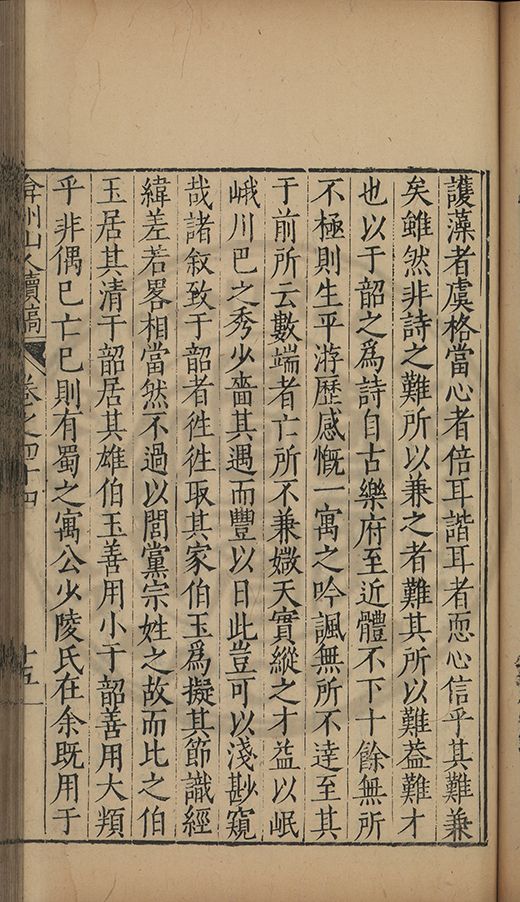 護藻者虞格當心者倍耳諧耳者恧心信乎其難兼
矣雖然非詩之難所以兼之者難其所以難益難才
也以于韶之爲詩自古樂府至近體不下十餘無所
不極則生平游歷感慨一寓之吟諷無所不逹至其
于前所云數端者亡所不兼媺天實縱之才益以岷
峨川巴之秀少嗇其遇而豐以日此豈可以淺尠窺
哉諸叙致于韶者徃徃取其家伯玉爲擬其節識經
緯差若畧相當然不過以閭黨宗姓之故而比之伯
玉居其清于韶居其雄伯玉善用小于韶善用大𩔖
乎非偶已亡已則有蜀之寓公少陵氏在余既用于
弇州山人續稿 卷之四十四 十五